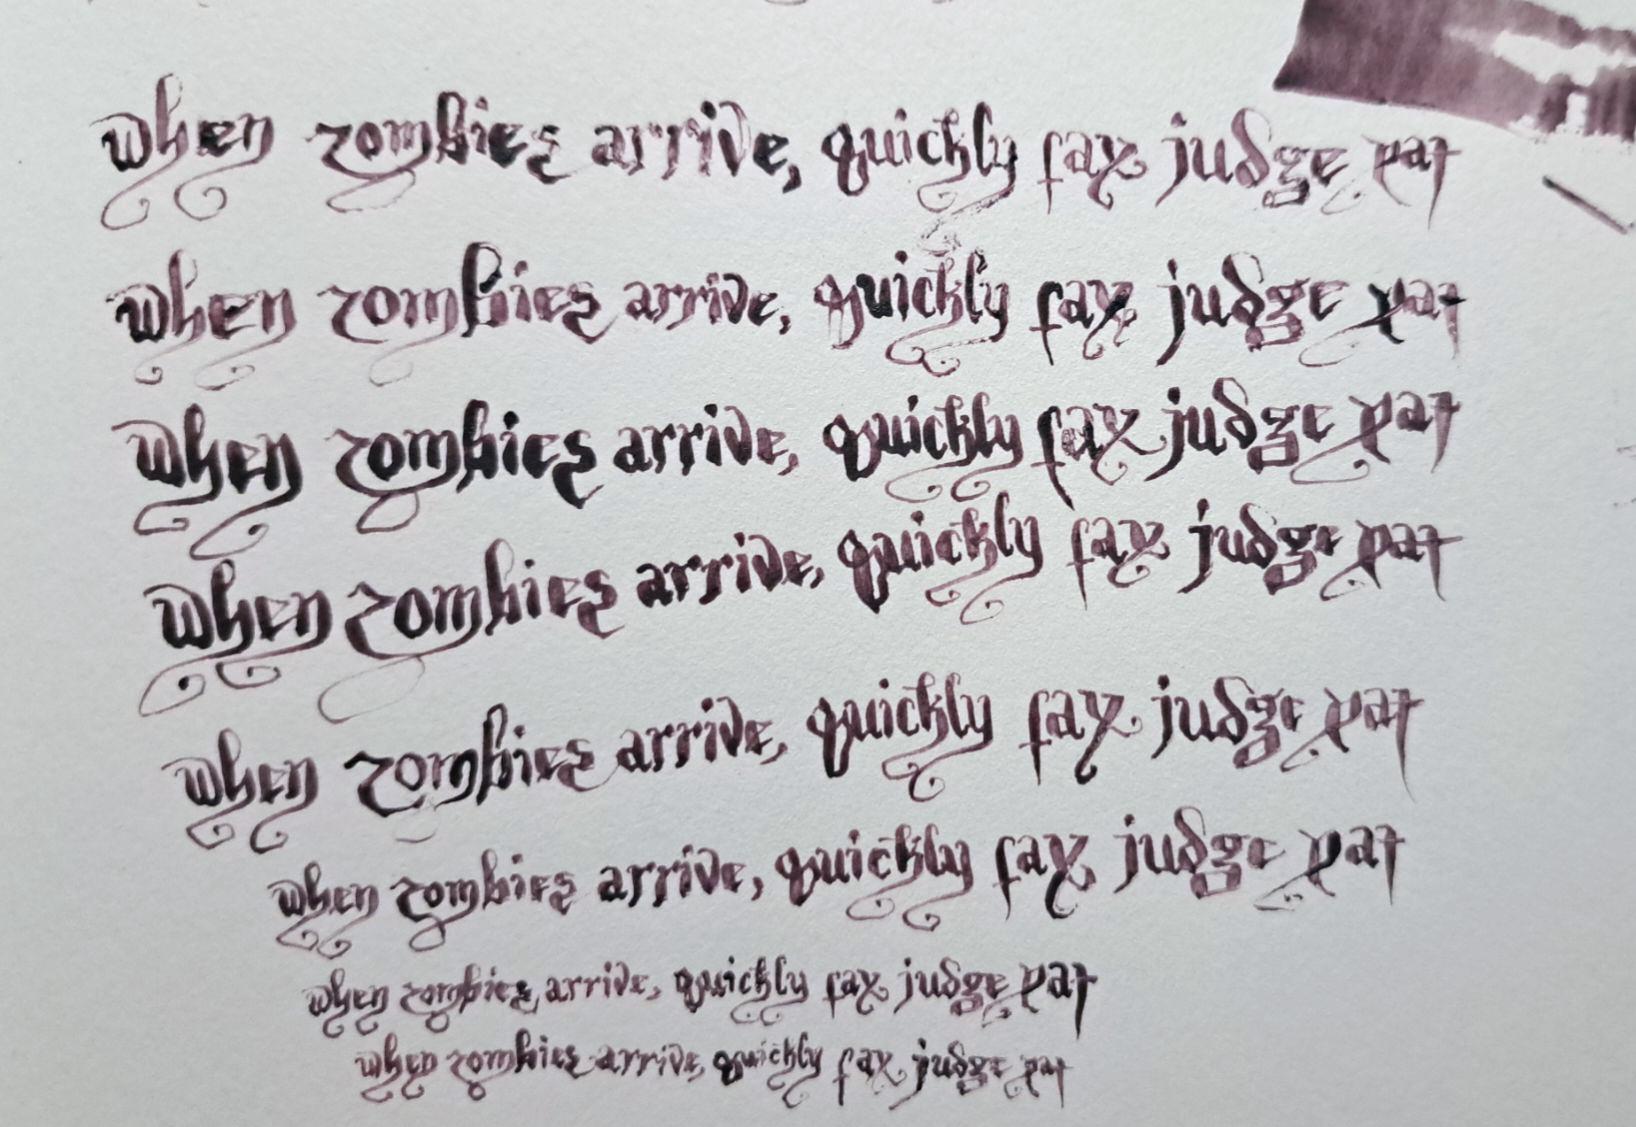 when zombies arrive, quickly fax judge pat
when zombies arrive, quickly fax judge pat
when zombies arrive, quickly fax judge pat
when zombies arrive, quickly fax judge pat
when zombies arrive, quickly fax judge pat
when zombies arrive, quickly fax judge pat
when zombies arrive, quickly fax judge pat
when zombies arrive, quickly fax judge pat